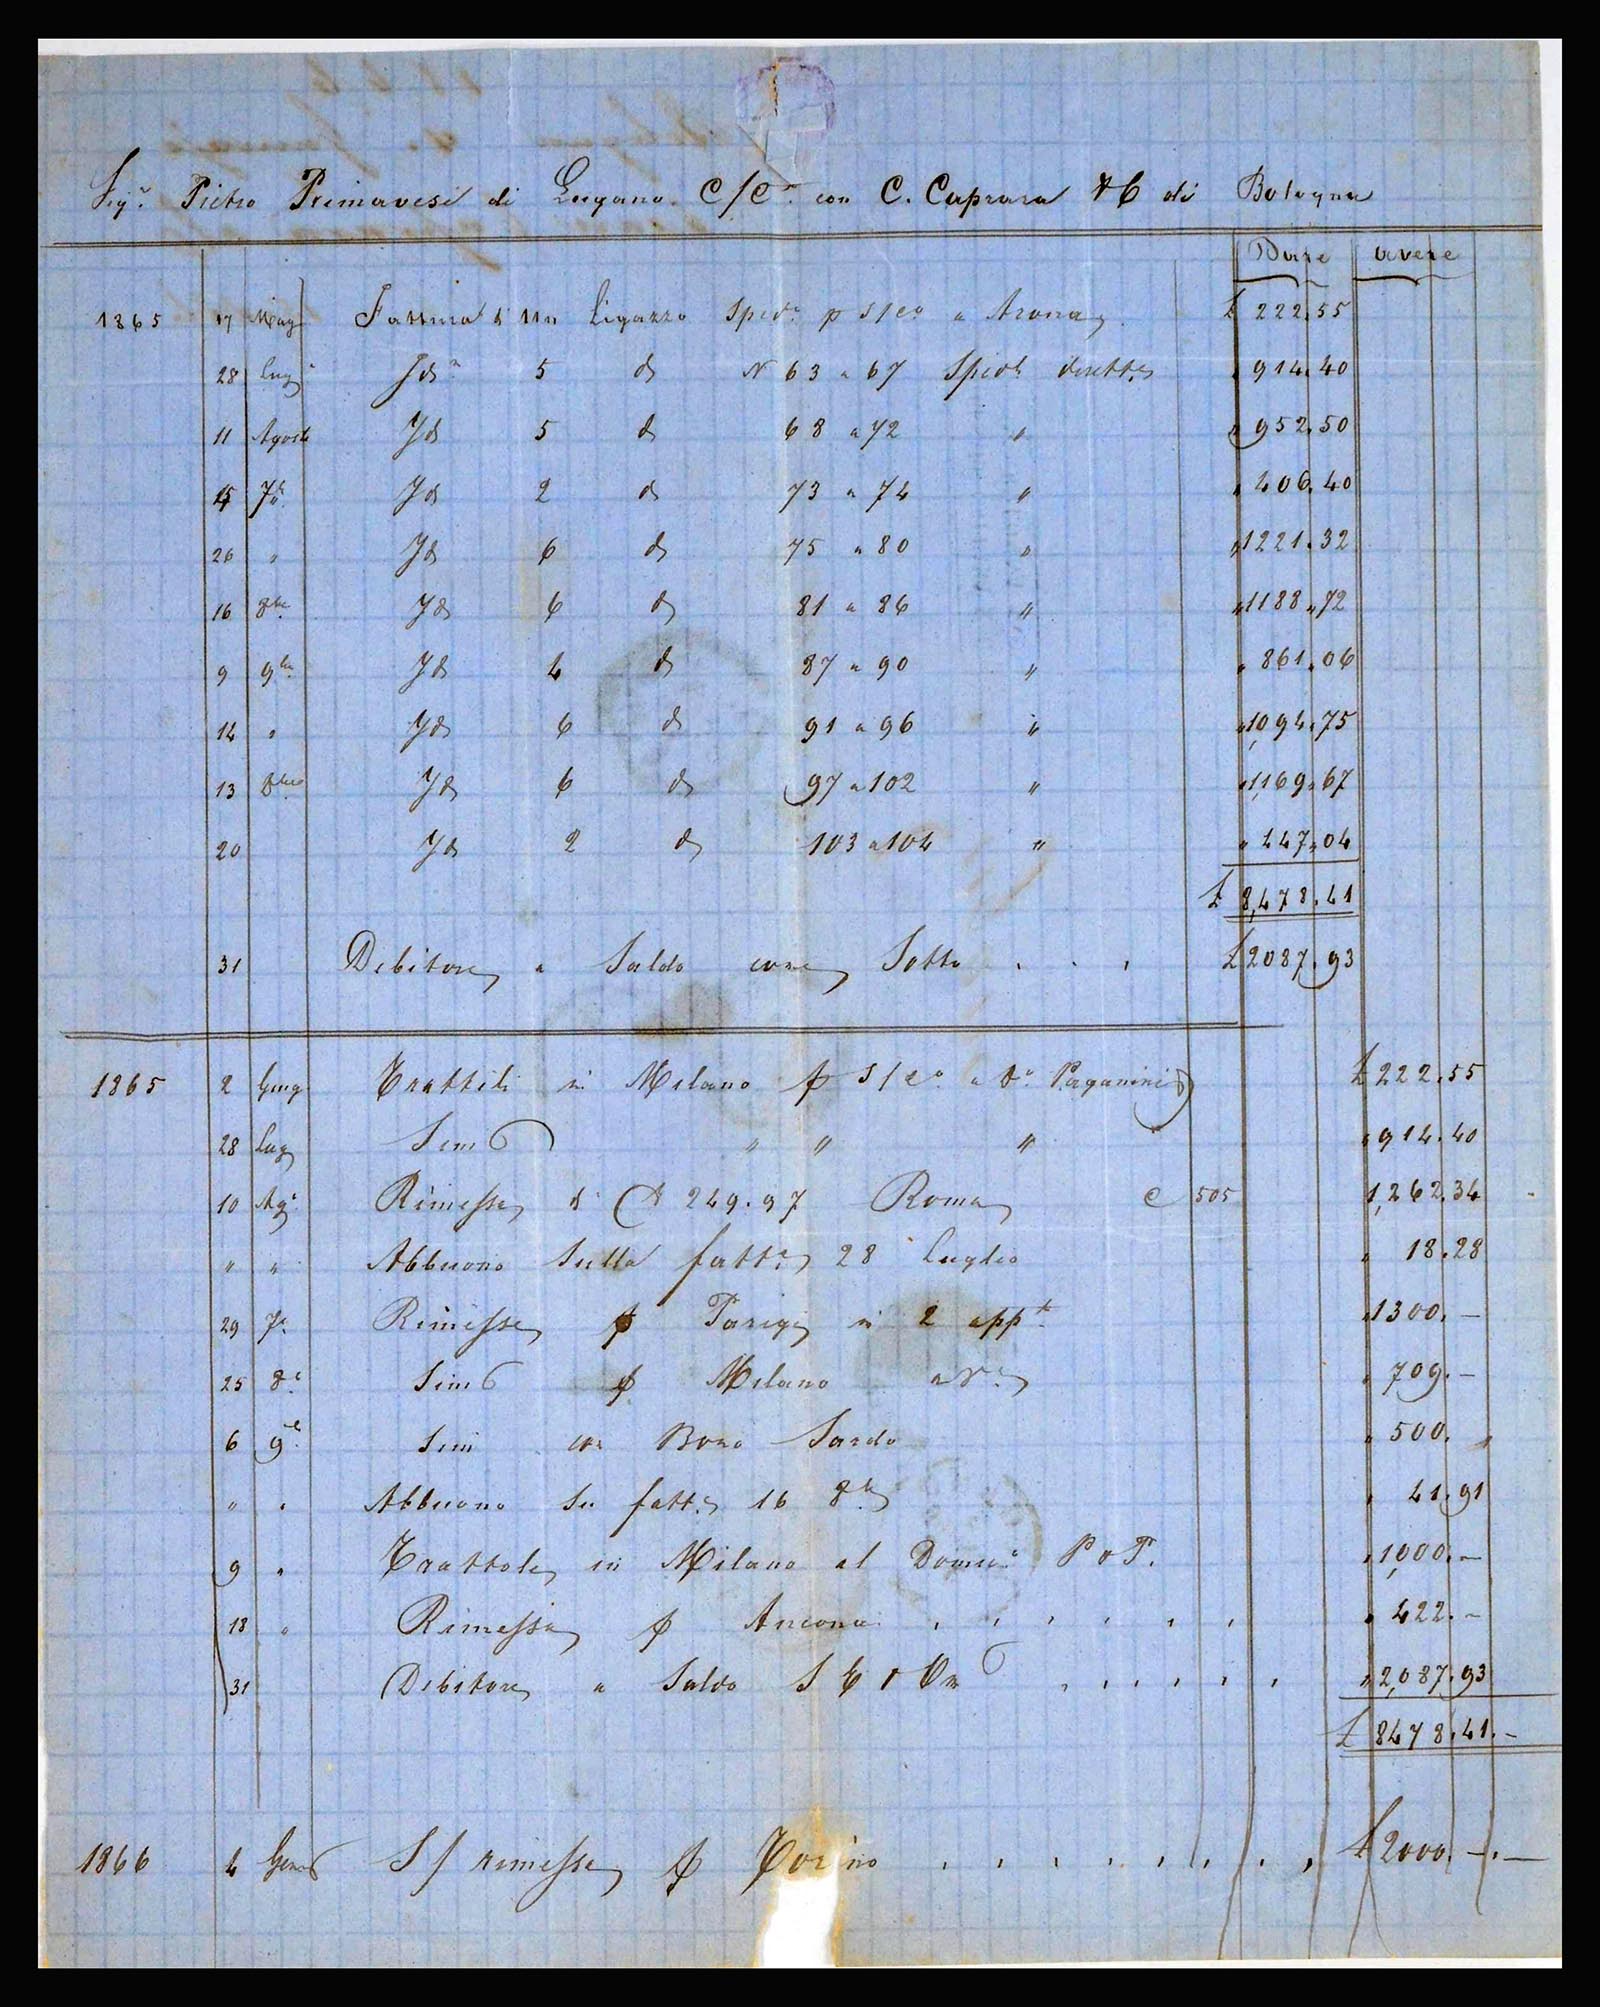 Sigr. Pietro Primavesi di Lugano C/Cte con C. Caprara & C di Bologna
Dare avere
1865 17 Mag. Fattura di un Ligazzo Sped. p s/co a Arona £ 222.55
28 Lug. Id. 5 d N 63 a 67 Sped. dirette 914.40
11 Agosto Id 5 d 68 a 72 " " 952.50
15 7e Id 2 d 73 a 74 " " 406.40
26 " Id 6 d 75 a 80 " " 1221.32
16 8bre Id 6 d 81 a 86 " " 1188.72
9 9bre Id 4 d 87 a 90 " " 861.06
14 " Id 6 d 91 a 96 " " 1,094.75
13 Xbre Id 6 d 97 a 102 " " 1,169.67
20 Id 2 d 103 a 104 " " 447.04
£ 8,478.41
31 Debitore a Saldo come Sotto . . . £ 2087.93
1865 2 Giug. in Milano p s/co a Paganini £ 222.55
28 Lug. Simo " " " " 914.40
10 Ag. Rimessa di 249.97 Roma C 505 1,262.34
" " Abbuono Sulla fatta 28 Luglio " 18.28
29 7e Rimesse p Parigi in 2 appti " 1300.—
25 8e Simo p Milano " 709.—
6 9e Sim con Bono Sardo " 500. "
" " Abbuono Su fatta 16 8bre " 41.91
9 " in Milano al Domio P & T. " 1,000.—
18 " Rimessa p Ancona . . . . . . " 422.—
31 Debitore a Saldo S E & O . . . . . " 2,087.93
£ 8478.41.—
1866 4 Gen. S/ rimessa p Torino . . . . . . . . £ 2000.—.—